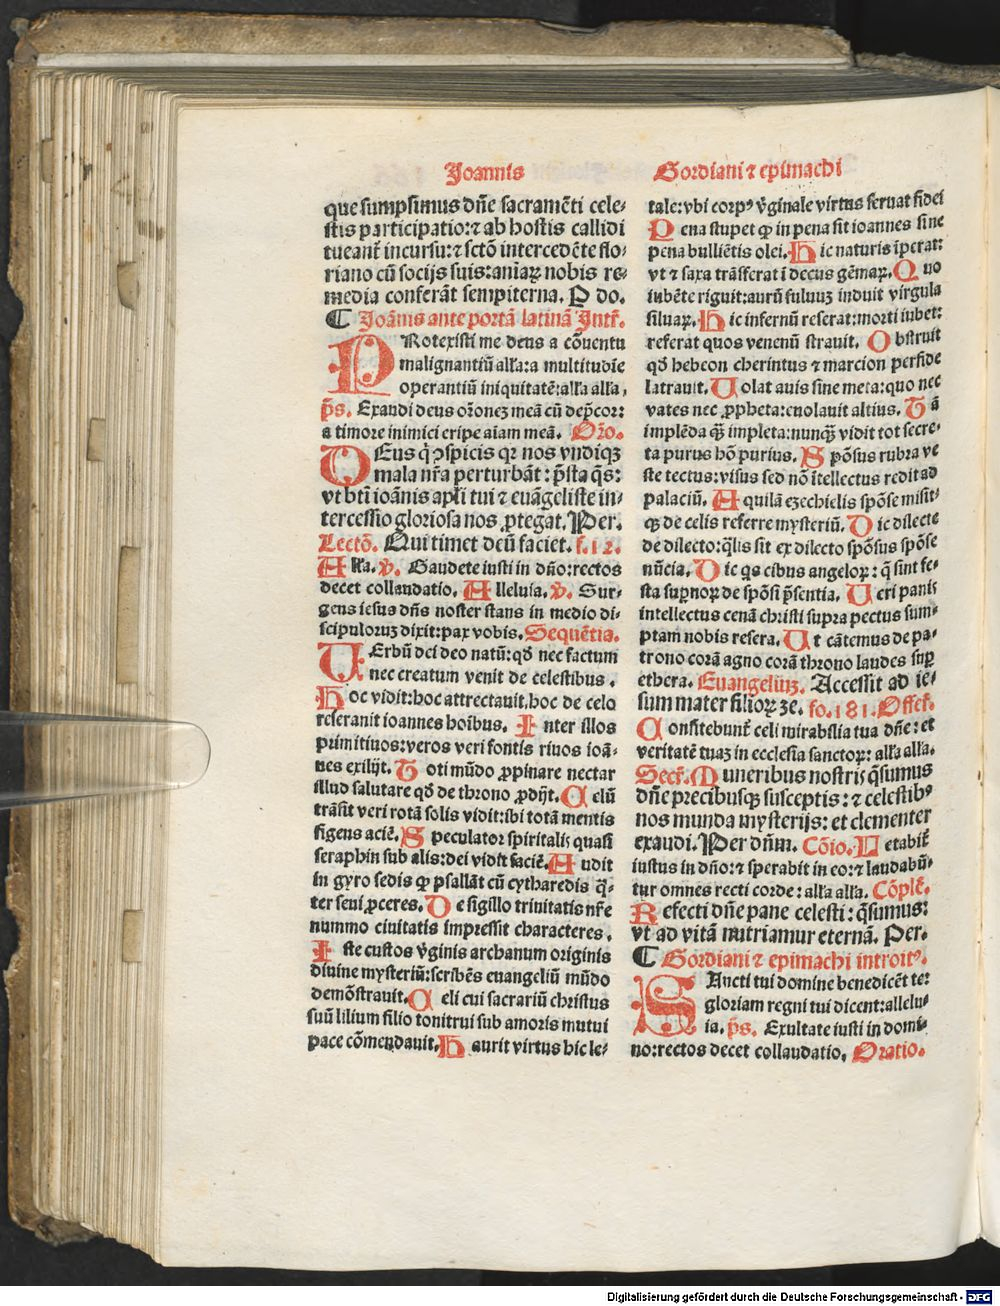 Joannis
que sumpsimus dñe sacramẽti cele⸗
stis participatio:⁊ ab hostis callidi
tueant᷑ incursu:⁊ sctõ intercedẽte flo⸗
riano cũ socijs suis:aniaꝝ nobis re⸗
media conferãt sempiterna. P do.
¶ Joãnis ante portã latinã Intr̃.
PRotexisti me deus a cõuentu
malignantiũ alr̃a:a multitudĩe
operantiũ iniquitatẽ:alr̃a alr̃a.
p̃s. Exaudi deus oꝛõnez meã cũ dep̃coꝛ:
a timore inimici eripe aĩam meã. Oꝛõ.
DEus q̃ ↄspicis qꝛ nos vndiqꝫ
mala nr̃a perturbãt: p̃sta q̃s:
vt bt̃i ioãnis apl̃i tui ⁊ euãgeliste in⸗
tercessio gloriosa nos ꝓtegat. Per.
Lectõ. Qui timet deũ faciet. f.12.
Alr̃a. v̉. Gaudete iusti in dño:rectos
decet collaudatio. Alleluia. v̉. Sur⸗
gens iesus dñs noster stans in medio di⸗
scipuloruz dixit:pax vobis. Sequẽtia.
VErbũ dei deo natũ:qđ nec factum
nec creatum venit de celestibus.
Hoc vidit:hoc attrectauit.hoc de celo
reserauit ioannes hoĩbus. Inter illos
primitiuos:veros veri fontis riuos ioã⸗
nes exilijt. Toti mũdo ꝓpinare nectar
illud salutare qđ de throno ꝓdijt. Celũ
trãsit veri rotã solis vidit:ibi totã mentis
figens aciẽ. Speculator spiritalis quasi
seraphin sub alis:dei vidit faciẽ. Audit
in gyro sedis qp̃ psallãt cũ cytharedis q̃⸗
ter seni ꝓceres. De sigillo trinitatis nr̃e
nummo ciuitatis impressit characteres.
Iste custos v̉ginis archanum originis
diuine mysteriũ:scribẽs euangeliũ mũdo
demõstrauit. Celi cui sacrariũ christus
suũ lilium filio tonitrui sub amoris mutui
pace cõmendauit. Haurit virtus hic le⸗
Gordiani ⁊ epimachi
tale:vbi corpꝰ v̉ginale virtus seruat fidei
Pena stupet qp̃ in pena sit ioannes sine
pena bulliẽtis olei. Hic naturis ĩperat:
vt ⁊ saxa trãsferat ĩ decus gẽmaꝝ. Quo
iubẽte riguit:aurũ fuluuz induit virgula
siluaꝝ. Hic infernũ reserat:morti iubet:
referat quos venenũ strauit. Obstruit
qđ hebeon cherintus ⁊ marcion perfide
latrauit. Volat auis sine meta:quo nec
vates nec ꝓpheta:euolauit altius. Tã
implẽda q̃ꝫ impleta:nunqꝫ̃ vidit tot secre⸗
ta purus hõ purius. Spõsus rubra ve
ste tectus:visus sed nõ ĩtellectus redit ad
palaciũ. Aquilã ezechielis spõse misit⸗
qꝫ de celis referre mysteriũ. Dic dilecte
de dilecto:q̃lis sit ex dilecto spõsus spõse
nũcia. Dic qs cibus angeloꝝ: q̃ sint fe⸗
sta supnoꝝ de spõsi p̃sentia. Veri panis
intellectus cenã christi supra pectus sum⸗
ptam nobis resera. Vt cãtemus de pa⸗
trono corã agno corã throno laudes sup
ethera. Euangeliũz. Accessit ad ie⸗
sum mater filioꝝ ze. fo.181. Offer̃.
Confitebunt᷑ celi mirabilia tua dñe: et
veritatẽ tuaz in ecclesia sanctoꝝ: alr̃a alr̃a.
Secr̃. Muneribus nostris q̃sumus
dñe precibusqꝫ susceptis: ⁊ celestibꝰ
nos munda mysterijs: et clementer
exaudi. Per dñm. Cõio. Letabit᷑
iustus in dño:⁊ sperabit in eo:⁊ laudabũ⸗
tur omnes recti corde: alr̃a alr̃a. Cõpl̃t.
Refecti dñe pane celesti: q̃sumus:
vt ad vitã nutriamur eternã. Per.
¶ Gordiani ⁊ epimachi introitꝰ.
SAncti tui domine benedicẽt te:
gloriam regni tui dicent:allelu⸗
ia. p̃s. Exultate iusti in domi⸗
no:rectos decet collaudatio. Oratio.
Digitalisierung gefördert durch die Deutsche Forschungsgemeinschaft - DFG